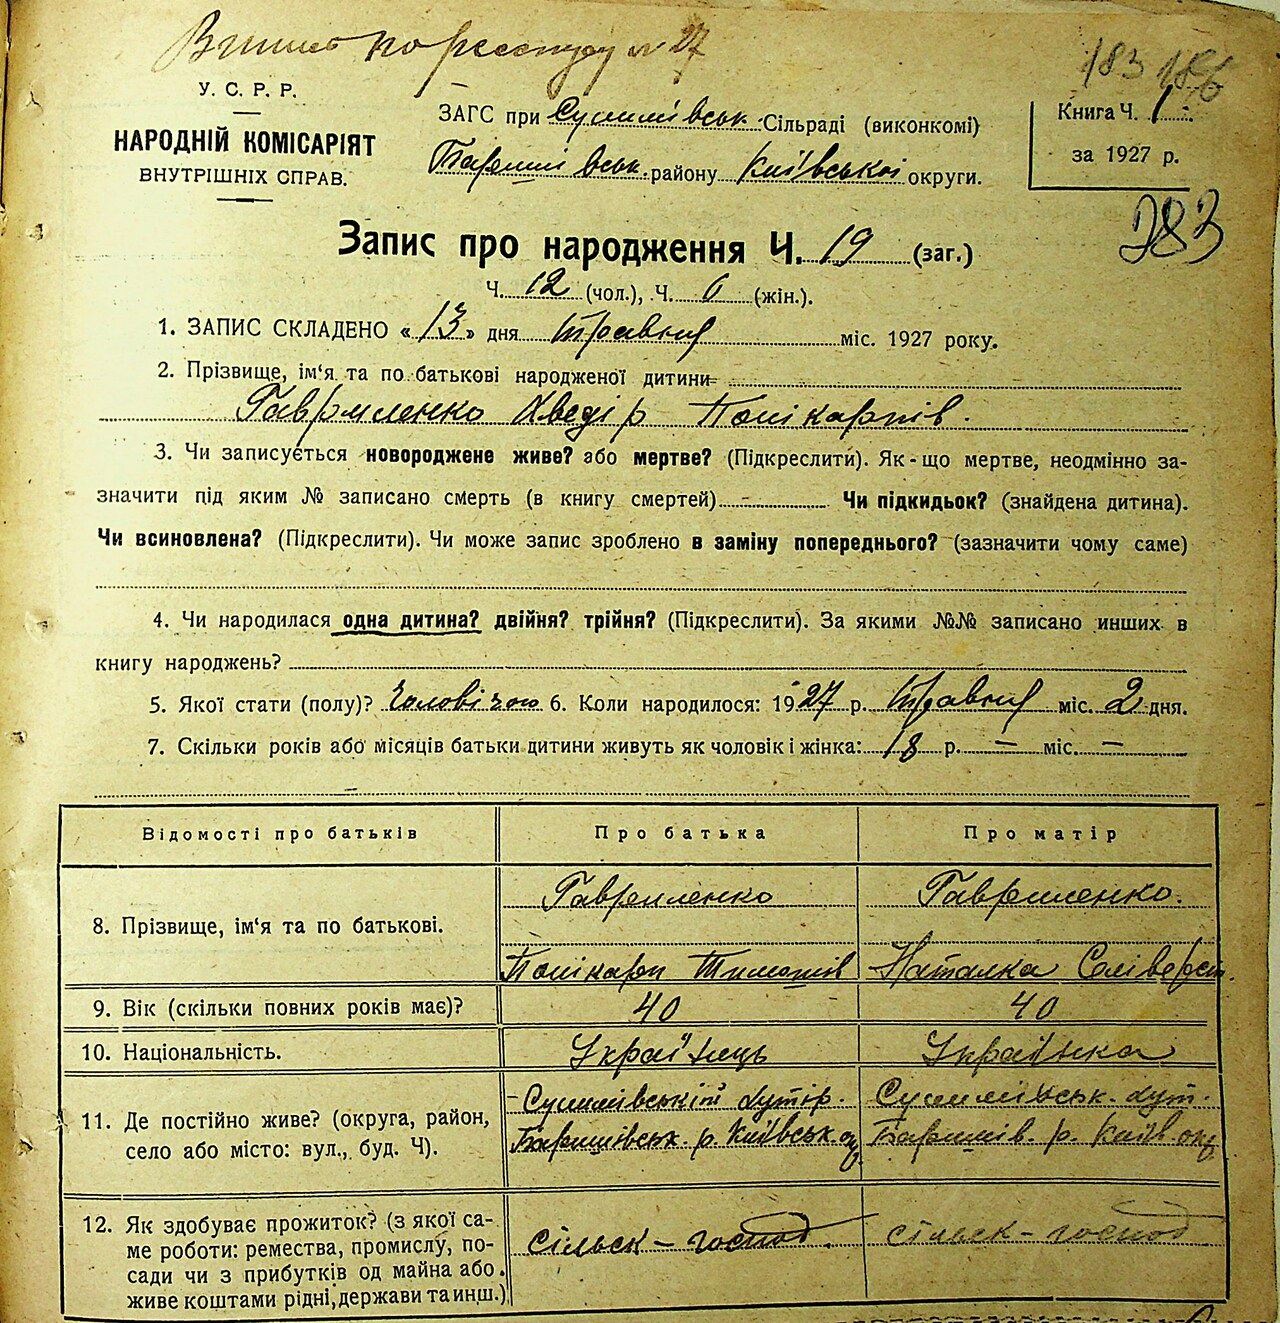 по реестру № 27
183 186
У. С. Р. Р.
НАРОДНІЙ КОМІСАРІЯТ
ВНУТРІШНІХ СПРАВ.
ЗАГС при Сулимівськ. Сільраді (виконкомі)
Баришівськ. району Київської округи.
Книга Ч. 1
за 1927 р.
283
Запис про народження Ч. 19 (заг.)
Ч. 12 (чол.), Ч. 6 (жін.).
1. ЗАПИС СКЛАДЕНО «13» дня травня міс. 1927 року.
2. Прізвище, ім‘я та по батькові народженої дитини
Гавриленко Хведір Полікарпів.
3. Чи записується новороджене живе? або мертве? (Підкреслити). Як-що мертве, неодмінно за-
значити під яким № записано смерть (в книгу смертей) Чи підкидьок? (знайдена дитина).
Чи всиновлена? (Підкреслити). Чи може запис зроблено в заміну попереднього? (зазначити чому саме)
4. Чи народилася одна дитина? двійня? трійня? (Підкреслити). За якими №№ записано инших в
книгу народжень?
5. Якої стати (полу)? Чоловічою 6. Коли народилося: 1927 р. травня міс. 2 дня.
7. Скільки років або місяців батьки дитини живуть як чоловік і жінка: 18 р. — міс. —
Відомості про батьків Про батька Про матір
8. Прізвище, ім‘я та по батькові.
Гавриленко Гавриленко.
Полікарп Тимошів Наталка Селіверст.
9. Вік (скільки повних років має)? 40 40
10. Національність. Українець Українка
11. Де постійно живе? (округа, район,
село або місто: вул., буд. Ч).
Сулимівській хутір. Сулимівськ. хут.
Баришівськ. р. Київськ. окр. Баришів. р. Київ. окр.
12. Як здобуває прожиток? (з якої са-
ме роботи: ремества, промислу, по-
сади чи з прибутків од майна або
живе коштами рідні, держави та инш.)
сільск-господ. сільск-господ.